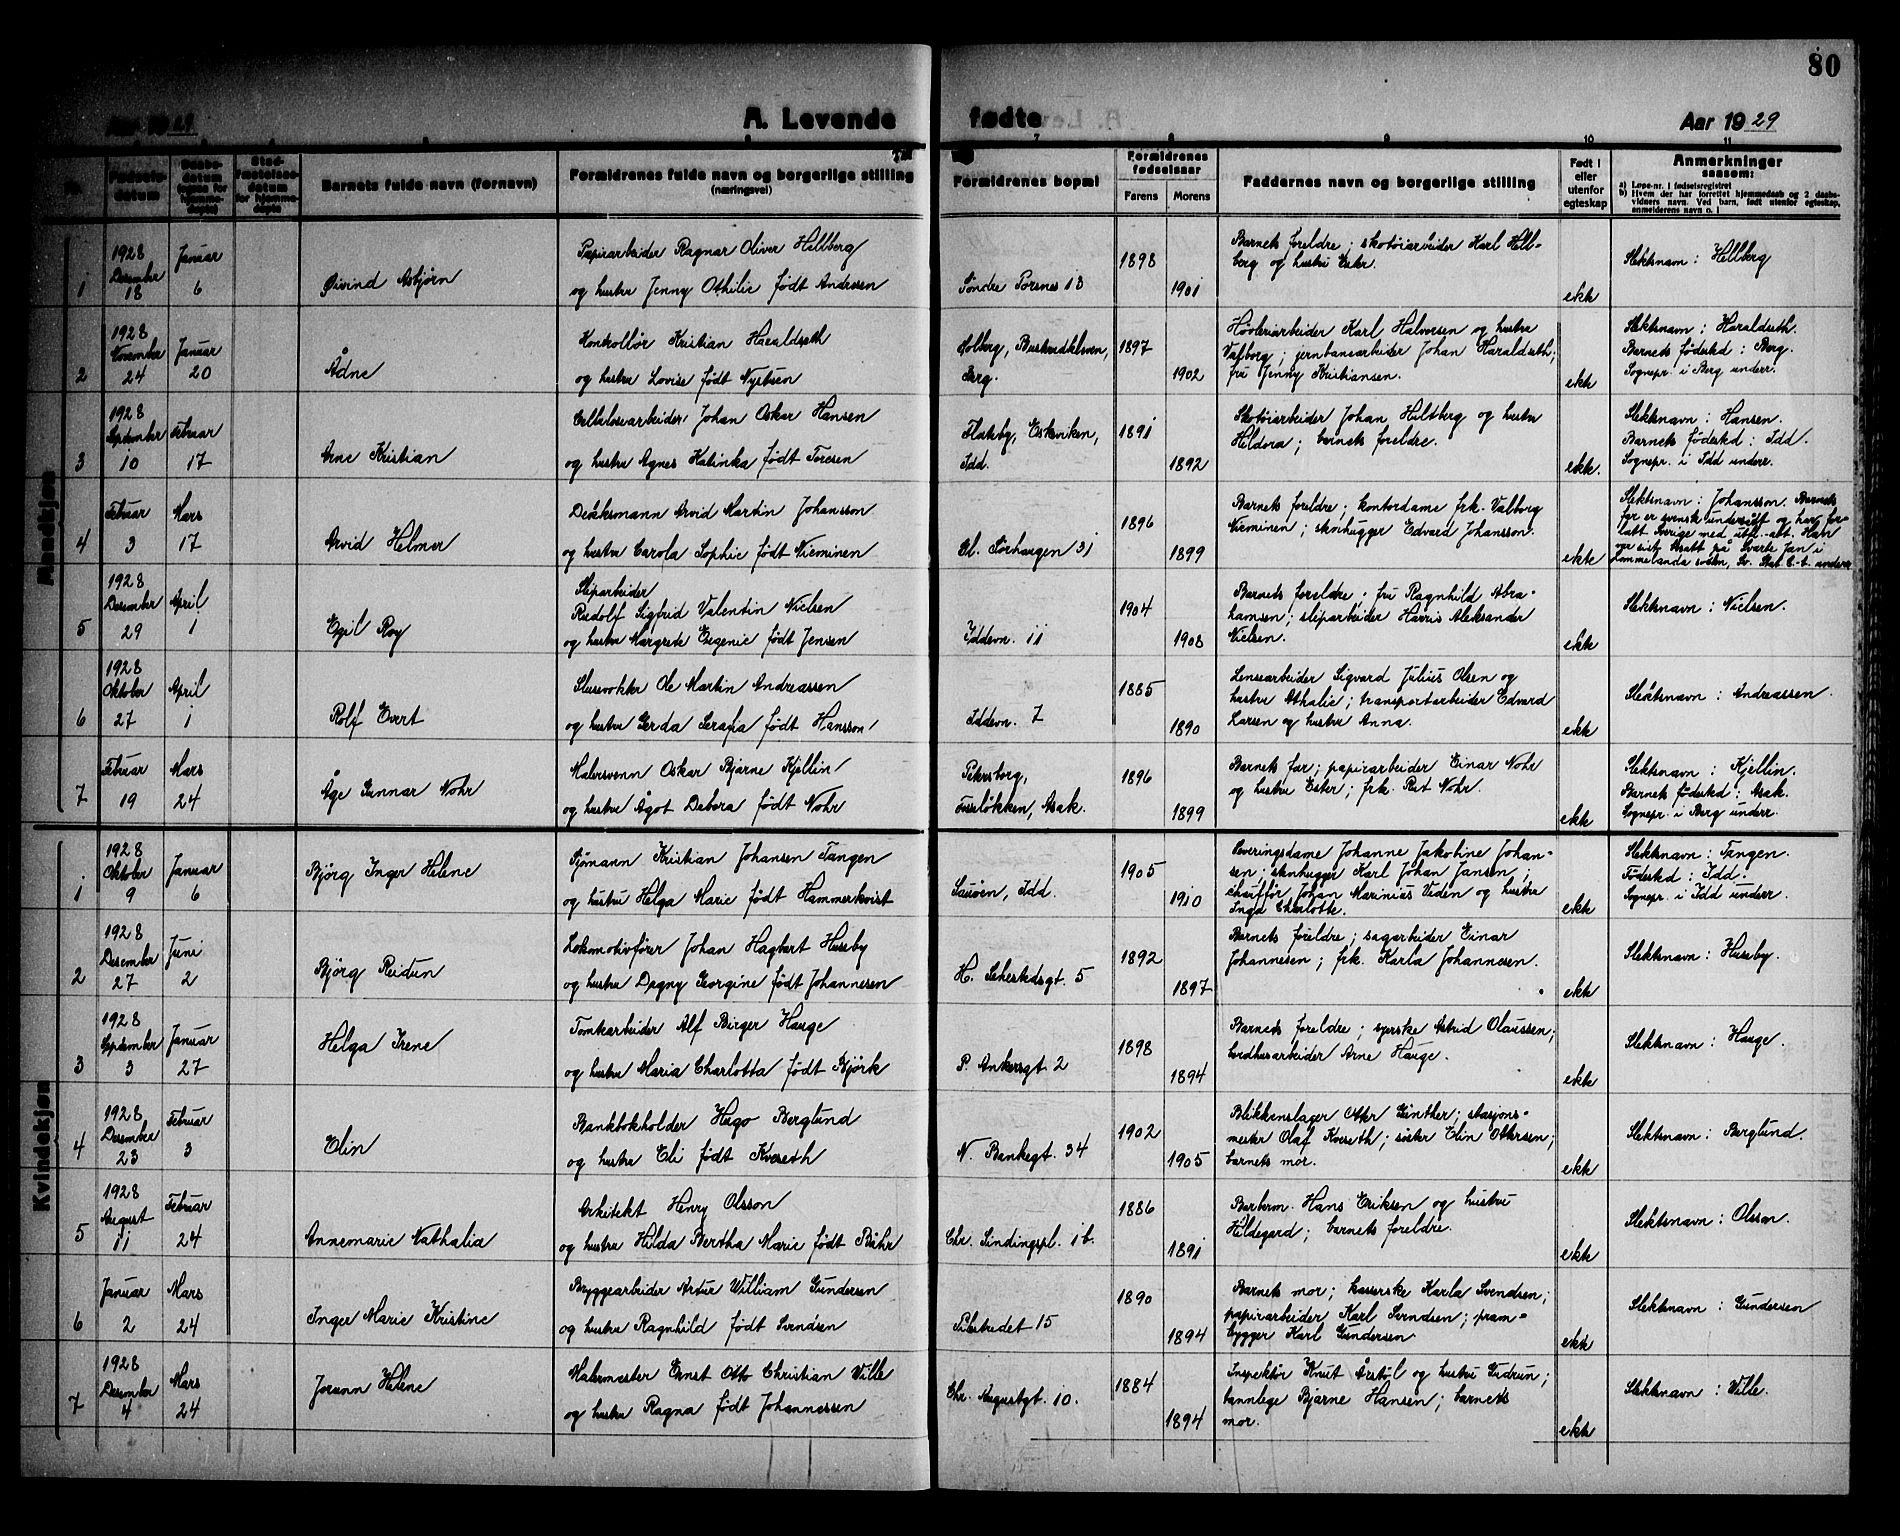 80
Aar 1929
A. Levende
fødte
Aar 1929
Fødsels-
datum
Daabs-
datum
Barnets fulde navn (fornavn)
Forældrenes fulde navn og borgerlige stilling
(næringsvei)
Forældrenes bopæl
Forældrenes
fødselsaar
Farens
Morens
Faddernes navn og borgerlige stilling
Født i
eller
utenfor
egteskap
Anmerkninger
saasom:
a) Løpe-nr. i fødselsregistret
b) Hvem der har forrettet hjemmedaab og 2 daabs-
vidners navn. Ved barn, født utenfor egteskap,
anmelderens navn o. l
Mandkjøn
1
1928
Desember
18
Januar
6
Øivind Asbjørn
Papirarbeider Ragnar Oliver Hellberg
og hustru Jenny Othilie født Andersen
Søndre Torsnes 13
1898
1901
Barnets foreldre; skotøiarbeider Karl Hell-
berg og hustru Ester.
ekte
Slektsnavn: Hellberg
2
1928
November
24
Januar
20
Ådne
Kontrollør Kristian Haraldseth
og hustru Lovise født Nystuen
Solberg, Buskredkleven,
Berg.
1897
1902
Høvleriarbeider Karl Halvorsen og hustru
Valborg; jernbanearbeider Johan Haraldseth;
fru Jenny Kristiansen.
ekte
Slektsnavn: Haraldseth.
Barnets fødested: Berg.
Sognepr. i Berg underr.
3
1928
September
10
Februar
17
Arne Kristian
Cellulosearbeider Johan Oskar Hansen
og hustru Agnes Katinka født Toresen
Flateby, Eskeviken,
Idd.
1891
1892
Skotøiarbeider Johan Hultberg og hustru
Hildora; barnets foreldre.
ekte.
Slektsnavn: Hansen.
Barnets fødested: Idd.
Sognepr. i Idd underr.
4
Februar
3
Mars
17
Arvid Helmer
Dekksmann Arvid Martin Johansson
og hustru Carola Sophie født Nieminen
Gl. Sørhaugen 31
1896
1899
Barnets foreldre; kontordame frk. Valborg
Nieminen; stenhugger Edvard Johansson.
ekte
Slektsnavn: Johansson. Barnets
far er svensk undersått og har for-
latt Sverige med utfl.-att. Han
var sist bosatt på Svarte Jan i
Lommelanda socken, Sv. Stat C.-b. underr.
5
1928
Desember
29
April
1
Egil Roy
Sliparbeider
Rudolf Sigfrid Valentin Nielsen
og hustru Margrete Eugenie født Jensen
Iddevn. 11
1904
1908
Barnets foreldre; fru Ragnhild Abra-
hamsen; sliparbeider Harris Aleksander
Nielsen.
ekte
Slektsnavn: Nielsen.
6
1928
Oktober
27
April
1
Rolf Evert
Slusevokter Ole Martin Andreassen
og hustru Gerda Serafia født Hansson
Iddevn. 7
1885
1890
Lensearbeider Sigvard Julius Olsen og
hustru Athalie; transportarbeider Edvard
Larsen og hustru Anna.
ekte
Slektsnavn: Andreassen.
7
Februar
19
Mars
24
Åge Gunnar Nohr
Malersvenn Oskar Bjarne Kjellin
og hustru Ågot Debora født Nohr
Petersborg,
Asak.
1896
1899
Barnets far; papirarbeider Einar Nohr
og hustru Ester; frk. Rut Nohr.
ekte
Slektsnavn: Kjellin.
Barnets fødested: Asak.
Sognepr. i Berg underr.
Kvindekjøn
1
1928
Oktober
9
Januar
6
Bjørg Inger Helene
Sjømann Kristian Johansen Tangen
og hustru Helga Marie født Hammerkvist
Sauøen, Idd.
1905
1910
Serveringsdame Johanne Jakobine Johan-
sen; stenhugger Karl Johan Jansen;
chauffør Johan Marinius Veden og hustru
Inga Charlotte.
ekte
Slektsnavn: Tangen.
Fødested: Idd.
Sognepr. i Idd underr.
2
1928
Desember
27
Juni
2
Bjørg Reidun
Lokomotivfører Johan Hagbart Huseby
og hustru Dagny Georgine født Johannesen
H. Sehestedsgt. 5
1892
1897
Barnets foreldre; sagarbeider Einar
Johannesen; frk. Karla Johannesen.
ekte
Slektsnavn: Huseby.
3
1928
September
3
Januar
27
Helga Irene
Tomtearbeider Alf Birger Hauge
og hustru Maria Charlotta født Bjørk
P. Ankersgt. 2
1898
1894
Barnets foreldre; syerske Astrid Olaussen;
bedhusarbeider Arne Hauge.
ekte
Slektsnavn: Hauge.
4
1928
Desember
23
Februar
3
Elin
Bankbokholder Hugo Berglund
og hustru Eli født Kvereth
N. Bankegt. 34
1902
1905
Blikkenslager Otter Günther; stasjons-
mester Olaf Kvereth; søster Elin Ottersen;
barnets mor.
ekte
Slektsnavn: Berglund.
5
1928
August
11
Februar
24
Annemarie Nathalia
Arkitekt Henry Olsson
og hustru Hilda Bertha Marie født Bühr
Chr. Sindingspl. 1b.
1886
1891
Barberm. Hans Eriksen og hustru
Hildegard; barnets foreldre.
ekte
Slektsnavn: Olsson.
6
Januar
2
Mars
24
Inger Marie Kristine
Bryggearbeider Artur William Gundersen
og hustru Ragnhild født Svendsen
Tistedet 15
1890
1894
Barnets mor; kasserske Karla Svendsen;
papirarbeider Karl Svendsen; pram-
bygger Karl Gundersen
ekte
Slektsnavn: Gundersen
7
1928
Desember
4
Mars
24
Jorunn Helene
Malermester Ernst Otto Christian Wille
og hustru Ragna født Johannessen
Chr. Augustgt. 10.
1884
1894
Inspektør Knut Årstøl og hustru Gudrun;
tannlege Bjarne Hansen; barnets
mor.
ekte
Slektsnavn: Wille.